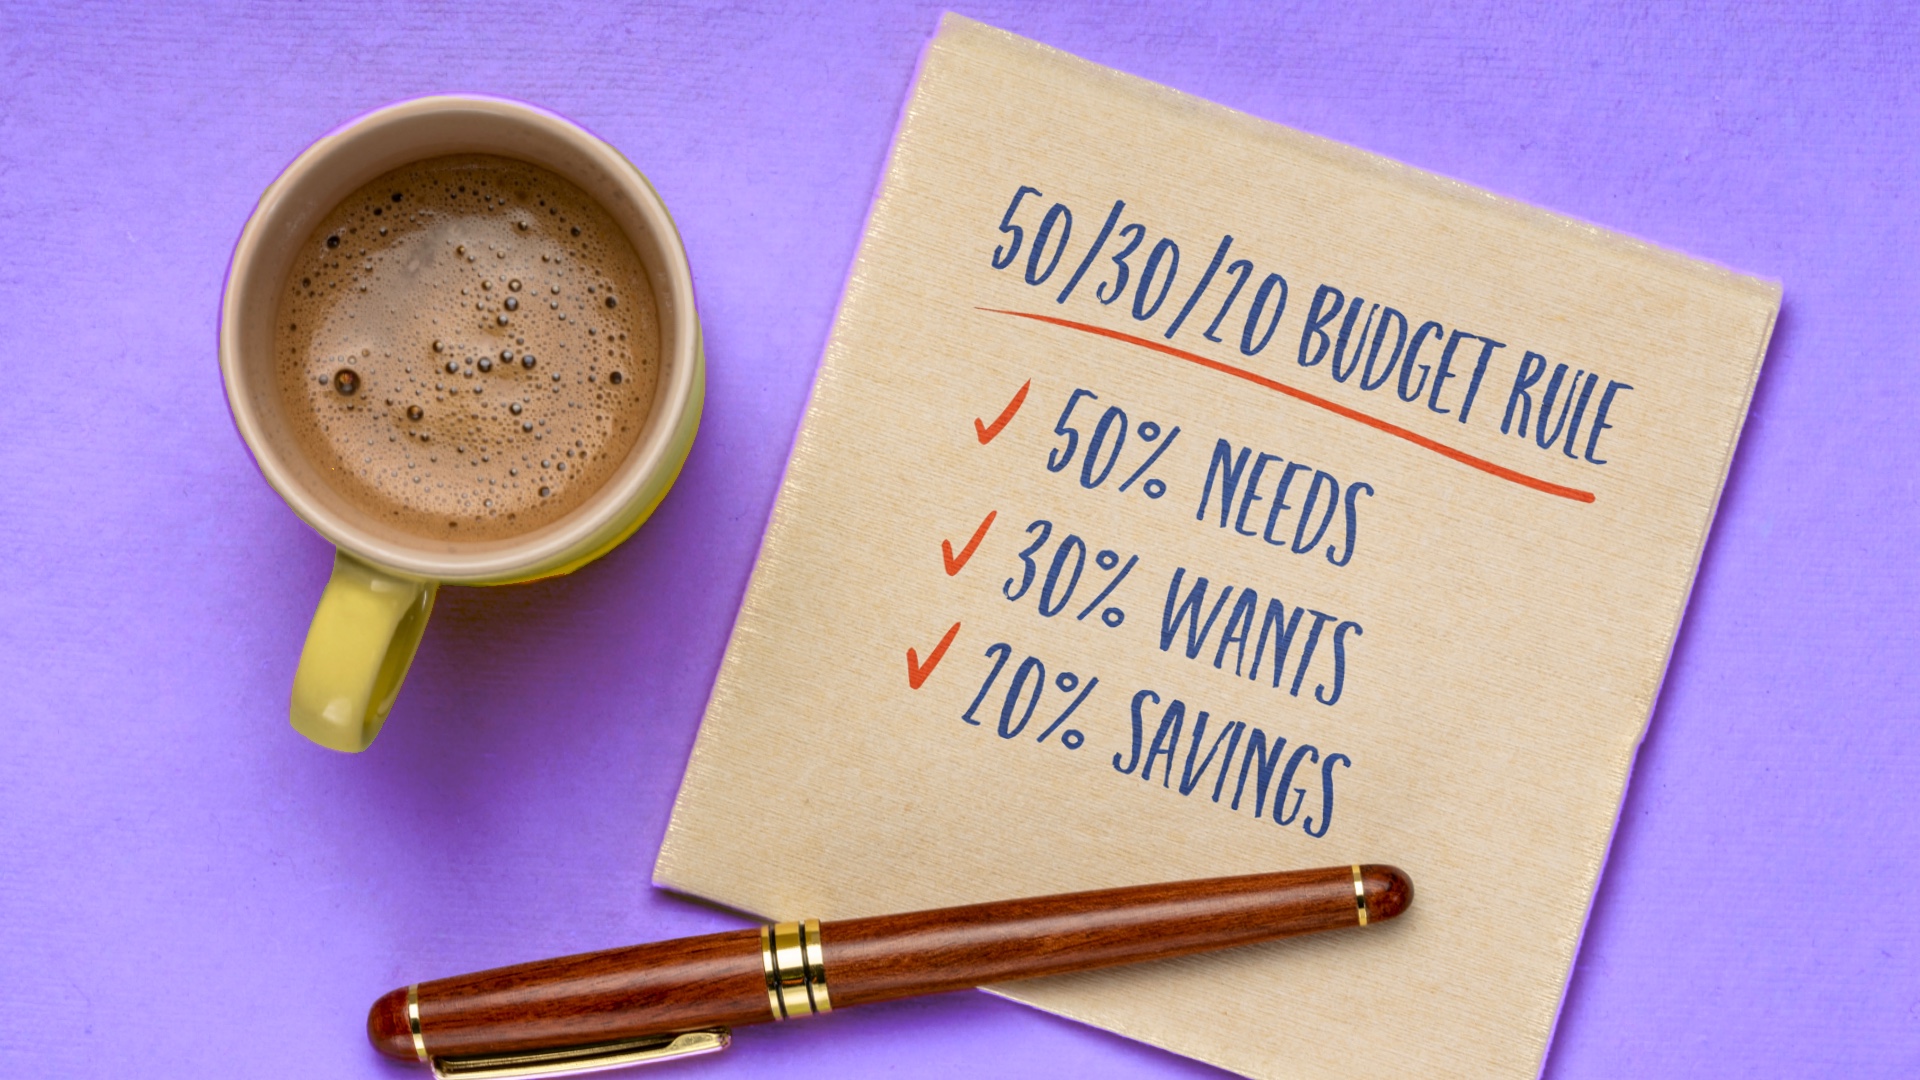 50/30/20 BUDGET RULE
50% NEEDS
30% WANTS
20% SAVINGS